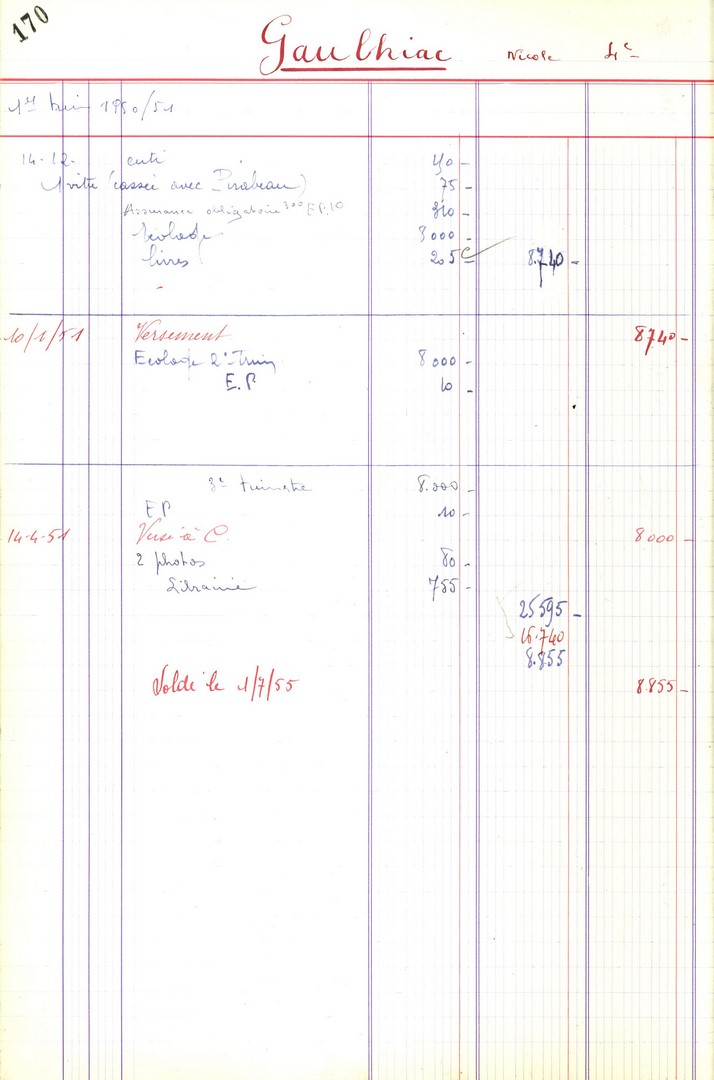 170
Gaulhiac Nicole 4e
1er trim 1950/51
14-12- cuti 150 -
1 vitre (cassée avec Pirabeau) 75 -
Assurance obligatoire 300 E.P. 10 310 -
Ecolage 8000 -
livres 205 8.740 -
10/1/51 Versement 8740 -
Ecolage 2e Trim 8000 -
E.P 10 -
3e trimestre 8.000 -
EP 10 -
14-4-51 Versé à C. 8000 -
2 photos 80 -
Librairie 755 -
25595 -
16.740
8.855
Soldé le 1/7/55 8.855 -